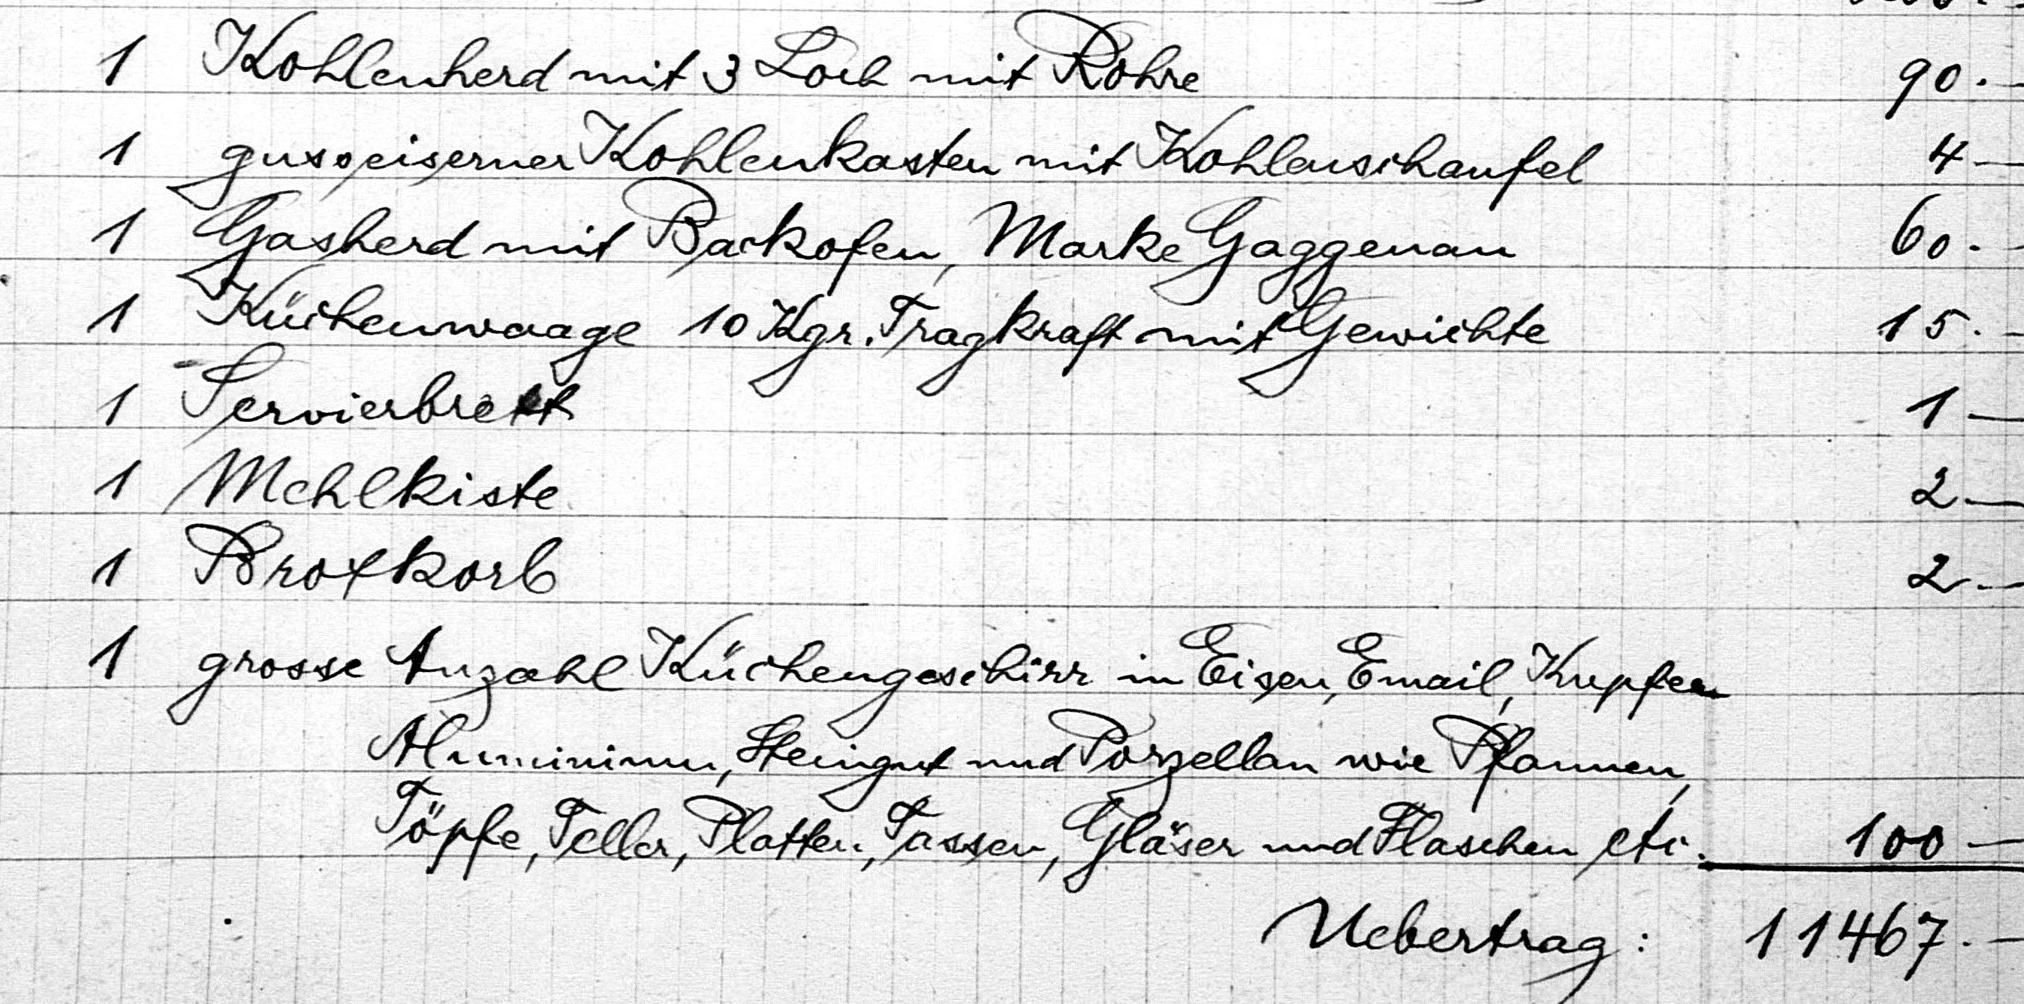 1 Kohlenherd mit 3 Loch mit Rohre 90.—
1 gusseiserner Kohlenkasten mit Kohlenschaufel 4—
1 Gasherd mit Backofen, Marke Gaggenau 60.—
1 Küchenwaage 10 Kgr. Tragkraft mit Gewichte 15.—
1 Servierbrett 1—
1 Mehlkiste 2—
1 Brotkorb 2.—
1 grosse Anzahl Küchengeschirr in Eisen, Email, Kupfer
Aluminium, Steingut und Porzellan wie Pfannen,
Töpfe, Teller, Platten, Tassen, Gläser und Flaschen etc. 100—
Uebertrag: 11467.—